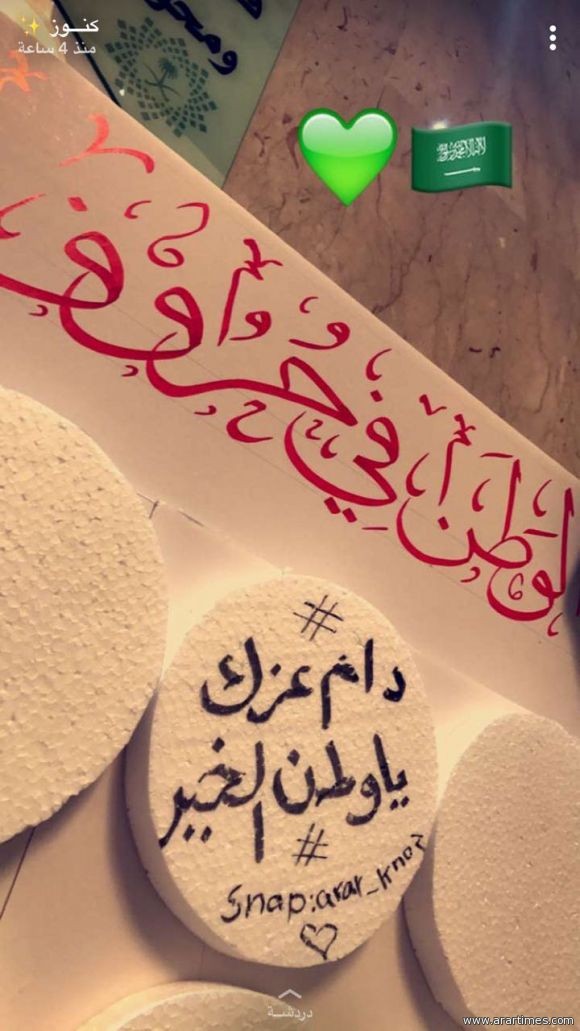 كنـــوز ✨
منذ 4 ساعة
ومحو
الوطن في حروف
#
دام عزك
ياوطن الخير
#
Snap:arar_knoz
دردشــة
www.arartimes.com